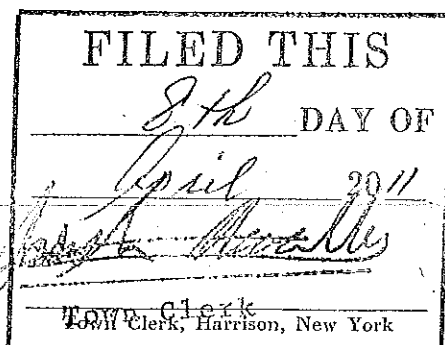 FILED THIS
8th DAY OF
April 2011
Town Clerk
Town Clerk, Harrison, New York